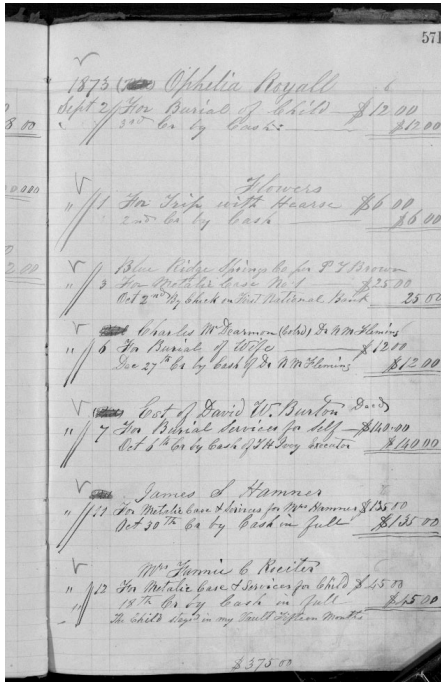 571
1873 Ophelia Royall
Sept 2 For Burial of Child $12.00
3rd Cr by Cash $12.00
8.00
Flowers
" 1 For Trip with Hearse $6.00
2nd Cr by Cash $6.00
Blue Ridge Springs Co for P T Brown
" 3 For Metalic Case No 1 $25.00
Oct 2nd By Check on First National Bank 25.00
2.00
Charles McDearmon (Cold) Dr N M Fleming
" 6 For Burial of Wife $12.00
Dec 27th Cr by Cash of Dr N M Fleming $12.00
Est of David W. Burton Decd
" 7 For Burial Services for Self $140.00
Oct 6th Cr by Cash of T H Ivey Executor $140.00
James S Hamner
" 11 For Metalic Case & Services for Mrs Hamner $135.00
Oct 30th Cr by Cash in full $135.00
Mrs Fannie C
" 12 For Metalic Case & Services for Child $45.00
" 18th Cr by Cash in full $45.00
" The Child Stayed in my Vault Fifteen Months
$375.00